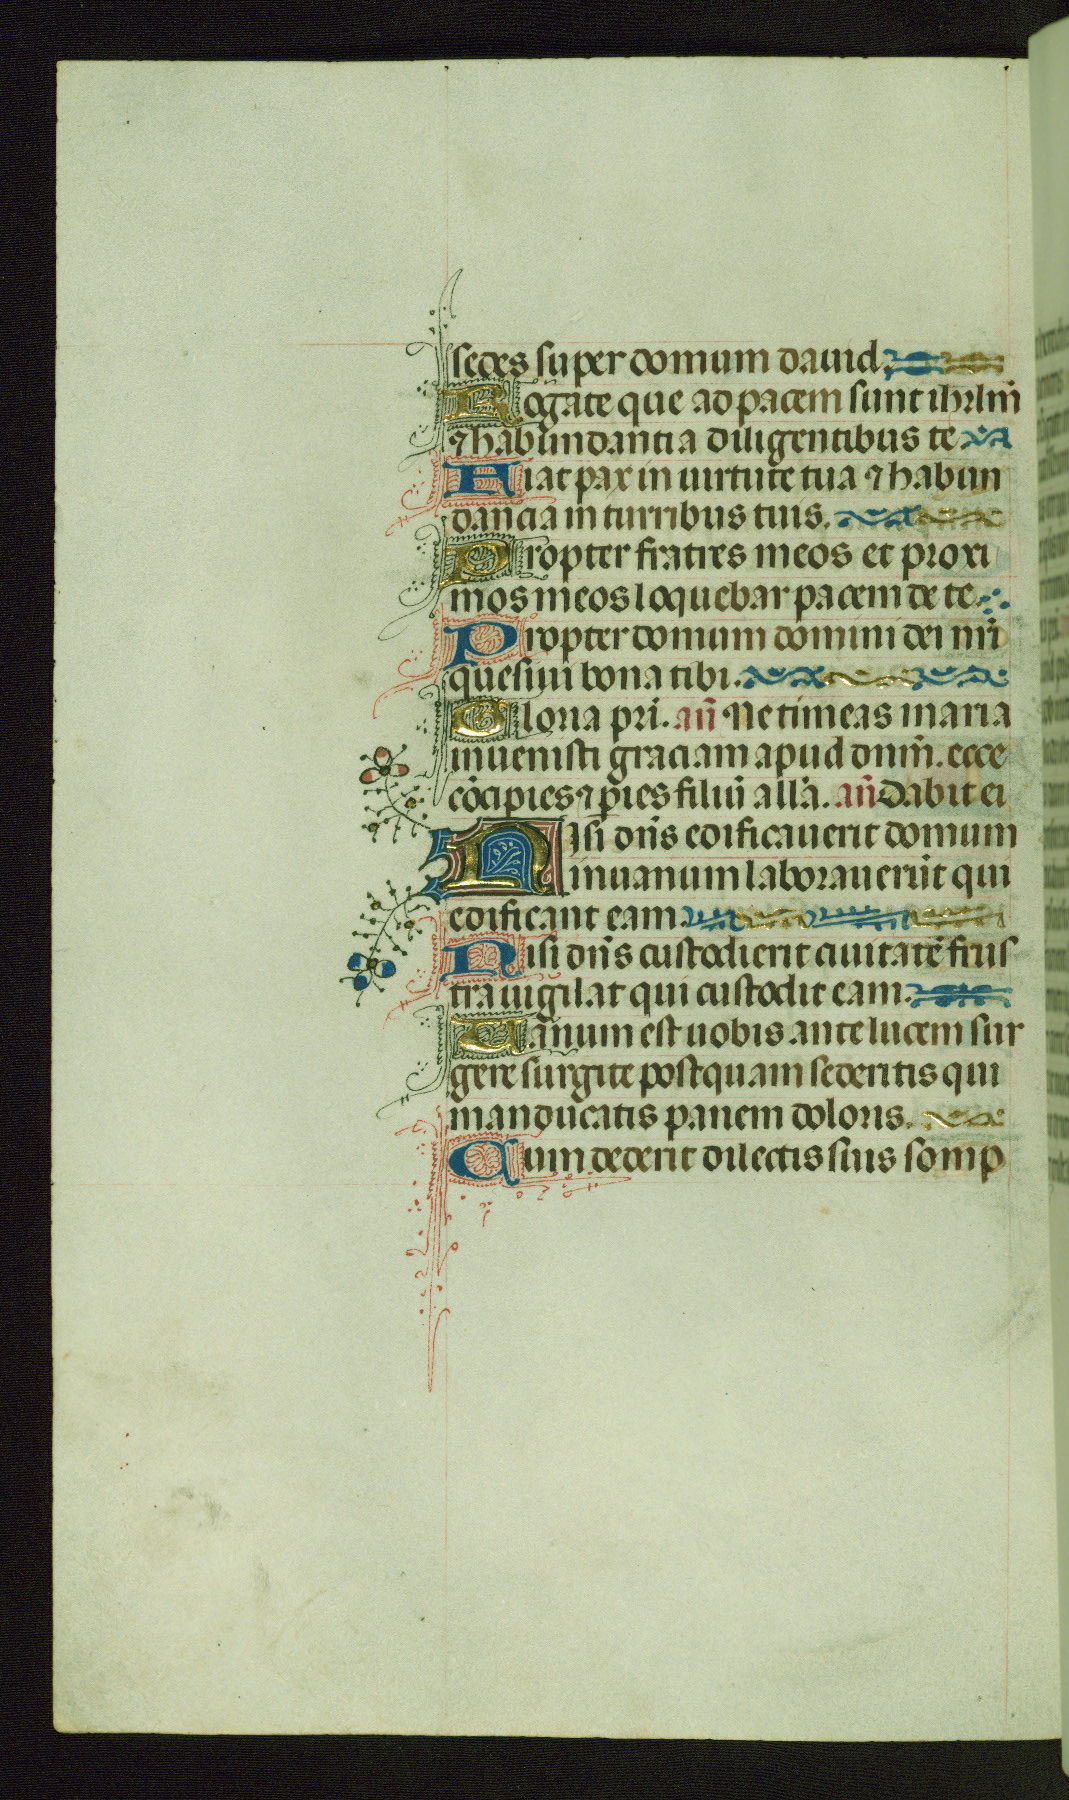 sedes super domum dauid.
Rogate que ad pacem sunt ihrl̄m
⁊ habundantia diligentibus te
Fiat pax in uirtute tua ⁊ habun
dancia in turribus tuis.
Propter fratres meos et proxi
mos meos loquebar pacem de te.
Propter domum domini dei nr̄i
quesiui bona tibi.
Gloria pr̄i. an̄ Ne timeas maria
inuenisti graciam apud dn̄m. ecce
cōcipies ⁊ p̄ies filiū all̄a. an̄ Dabit ei
Nisi dn̄s edificauerit domum
in uanum laborauerūt qui
edificant eam.
Nisi dn̄s custodierit ciuitatē frus
tra uigilat qui custodit eam.
Uanum est uobis ante lucem sur
gere surgite postquam sederitis qui
manducatis panem doloris.
Cum dederit dilectis suis somp